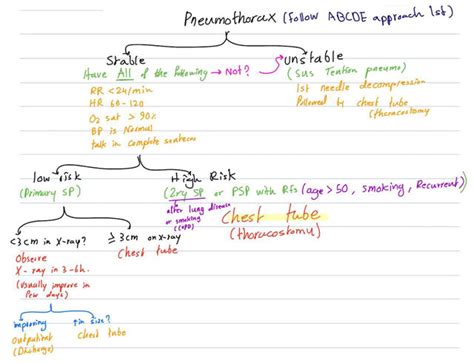 Pneumothorax (follow ABCDE approach 1st)
Stable
Unstable
Have All of the following → Not?
(sus Tention pneumo)
RR <24/min
HR 60-120
O2 sat > 90%
BP is Normal
talk in complete sentences
1st needle decompression
followed by chest tube
(thoracostomy)
low risk
(Primary SP)
High Risk
(2ry SP or PSP with Rfs (age > 50, smoking, Recurrent)
after lung disease
or smoking
(COPD)
Chest tube
(thoracostomy)
<3cm in X-ray?
≥3cm on X-ray
Observe
X-ray in 3-6h.
(usually improve in
few days)
Chest tube
improving
↑ in size?
outpatient
(Discharge)
chest tube